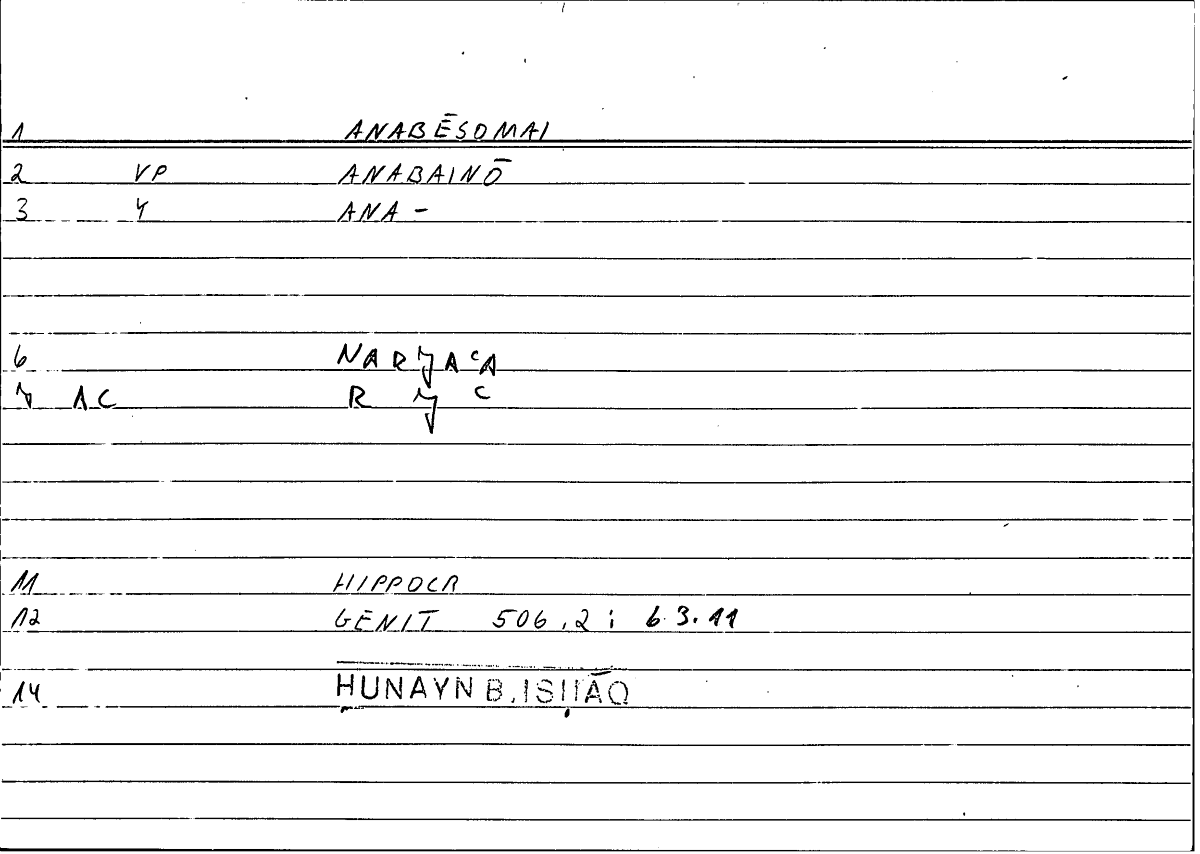 1 ANABĒSOMAI
2 VP ANABAINŌ
3 4 ANA -
6 NARJAʿA
7 1C R J ʿ
11 HIPPOCR
12 GENIT 506,2; 6.3.11
14 ḤUNAYN B. ISḤĀQ